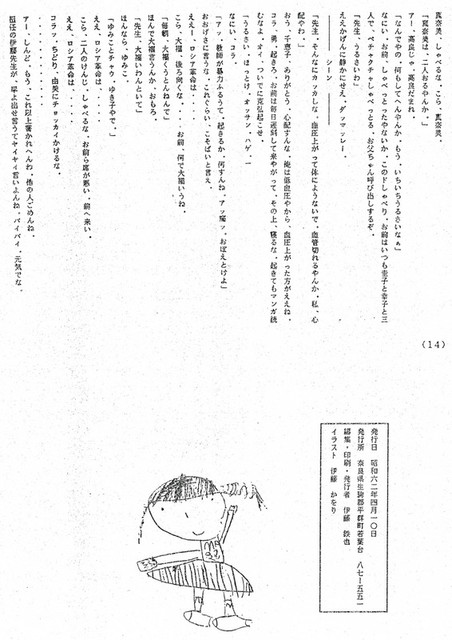 真奈美、しゃべるな。こら、真奈美。
「真奈美は、二人おるやんか。」
アー、高良じゃ、高良だまれ。
「なんでやの、何もしてへんやんか。もう、いちいちうるさいなぁ」
なにい、お前、しゃべっとったやないか、このドしゃべり、お前はいつも圭子と幸子と三
人で、ペチャクチャしゃべっとる、お父ちゃん呼び出しするぞ。
「先生、うるさいわ」
ええかげんに静かにせえ、ダァマァレー。
シーン
「先生、そんなにカッカしな、血圧上がって体にようないで、血管切れるやんか、私、心
配やわ。」
おう、千恵子、ありがとう、心配すんな、俺は低血圧やから、血圧上がった方がええねん。
コラ、勇、起きろ、お前は毎日遅刻して来やがって、その上、寝るな、起きてもマンガ読
むなよ、オイ、ついでに克弘起こせ。
「うるさい、ほっとけ、オッサン、ハゲ、」
なにい、コラ。
「アッ、教師が暴力ふるうて、起きるか、何すんね、アッ痛ッ、おぼえとけよ」
おおげさに言うな、これぐらい、こそばいと言え。
ええー、ロシア革命は・・・・
こら、大福、後ろ向くな、・・・お前、何で大福いうね。
「毎朝、大福くうとんねんて」
ほんで大福言うんか、おもろ。
「先生、大福いわんといて」
ほんなら、ゆみこ。
「ゆみことチャウ、ゆき子やで。」
ええ、ロシア革命は・・・・
こら、二人のけんじ、しゃべるな、お前ら席が悪い、前へ来い。
ええ、ロシア革命は・・・・
コラッ、ちどり、由美にチョッカイかけるな。
・・・・・・
アー、しんど、もう、これ以上書かれへんわ、他の人ごめんね。
担任の伊藤先生が、早よ出せ言うてヤイヤイ言いよんね、バイバイ、元気でな。
(14)
発行日 昭和六二年四月一〇日
発行所 奈良県生駒郡平群町若葉台 八七ー五五一
編集・印刷・発行者 伊藤 鉄也
イラスト 伊藤 かをり